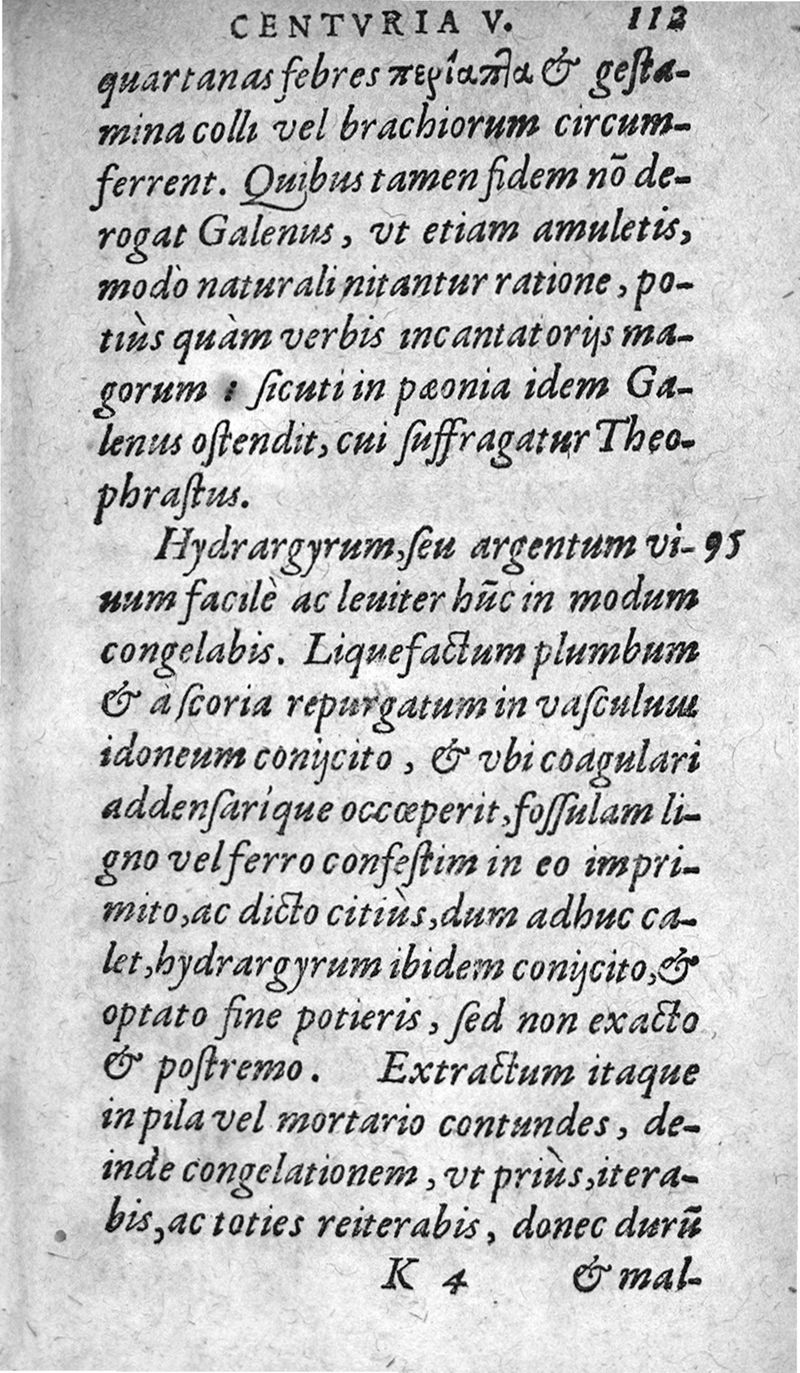 CENTVRIA V. 112
quartanas febres περίαπλα & gesta-
mina colli vel brachiorum circum-
ferrent. Quibus tamen fidem nõ de-
rogat Galenus, vt etiam amuletis,
modò naturali nitantur ratione, po-
tiùs quàm verbis incantatorijs ma-
gorum : sicuti in pæonia idem Ga-
lenus ostendit, cui suffragatur Theo-
phrastus.
Hydrargyrum, seu argentum vi- 95
uum facilè ac leuiter hũc in modum
congelabis. Liquefactum plumbum
& à scoria repurgatum in vasculum
idoneum conijcito, & vbi coagulari
addensarique occœperit, fossulam li-
gno vel ferro confestim in eo impri-
mito, ac dicto citiùs, dum adhuc ca-
let, hydrargyrum ibidem conijcito, &
optato fine potieris, sed non exacto
& postremo. Extractum itaque
in pila vel mortario contundes, de-
inde congelationem, vt priùs, itera-
bis, ac toties reiterabis, donec durũ
K 4 & mal-